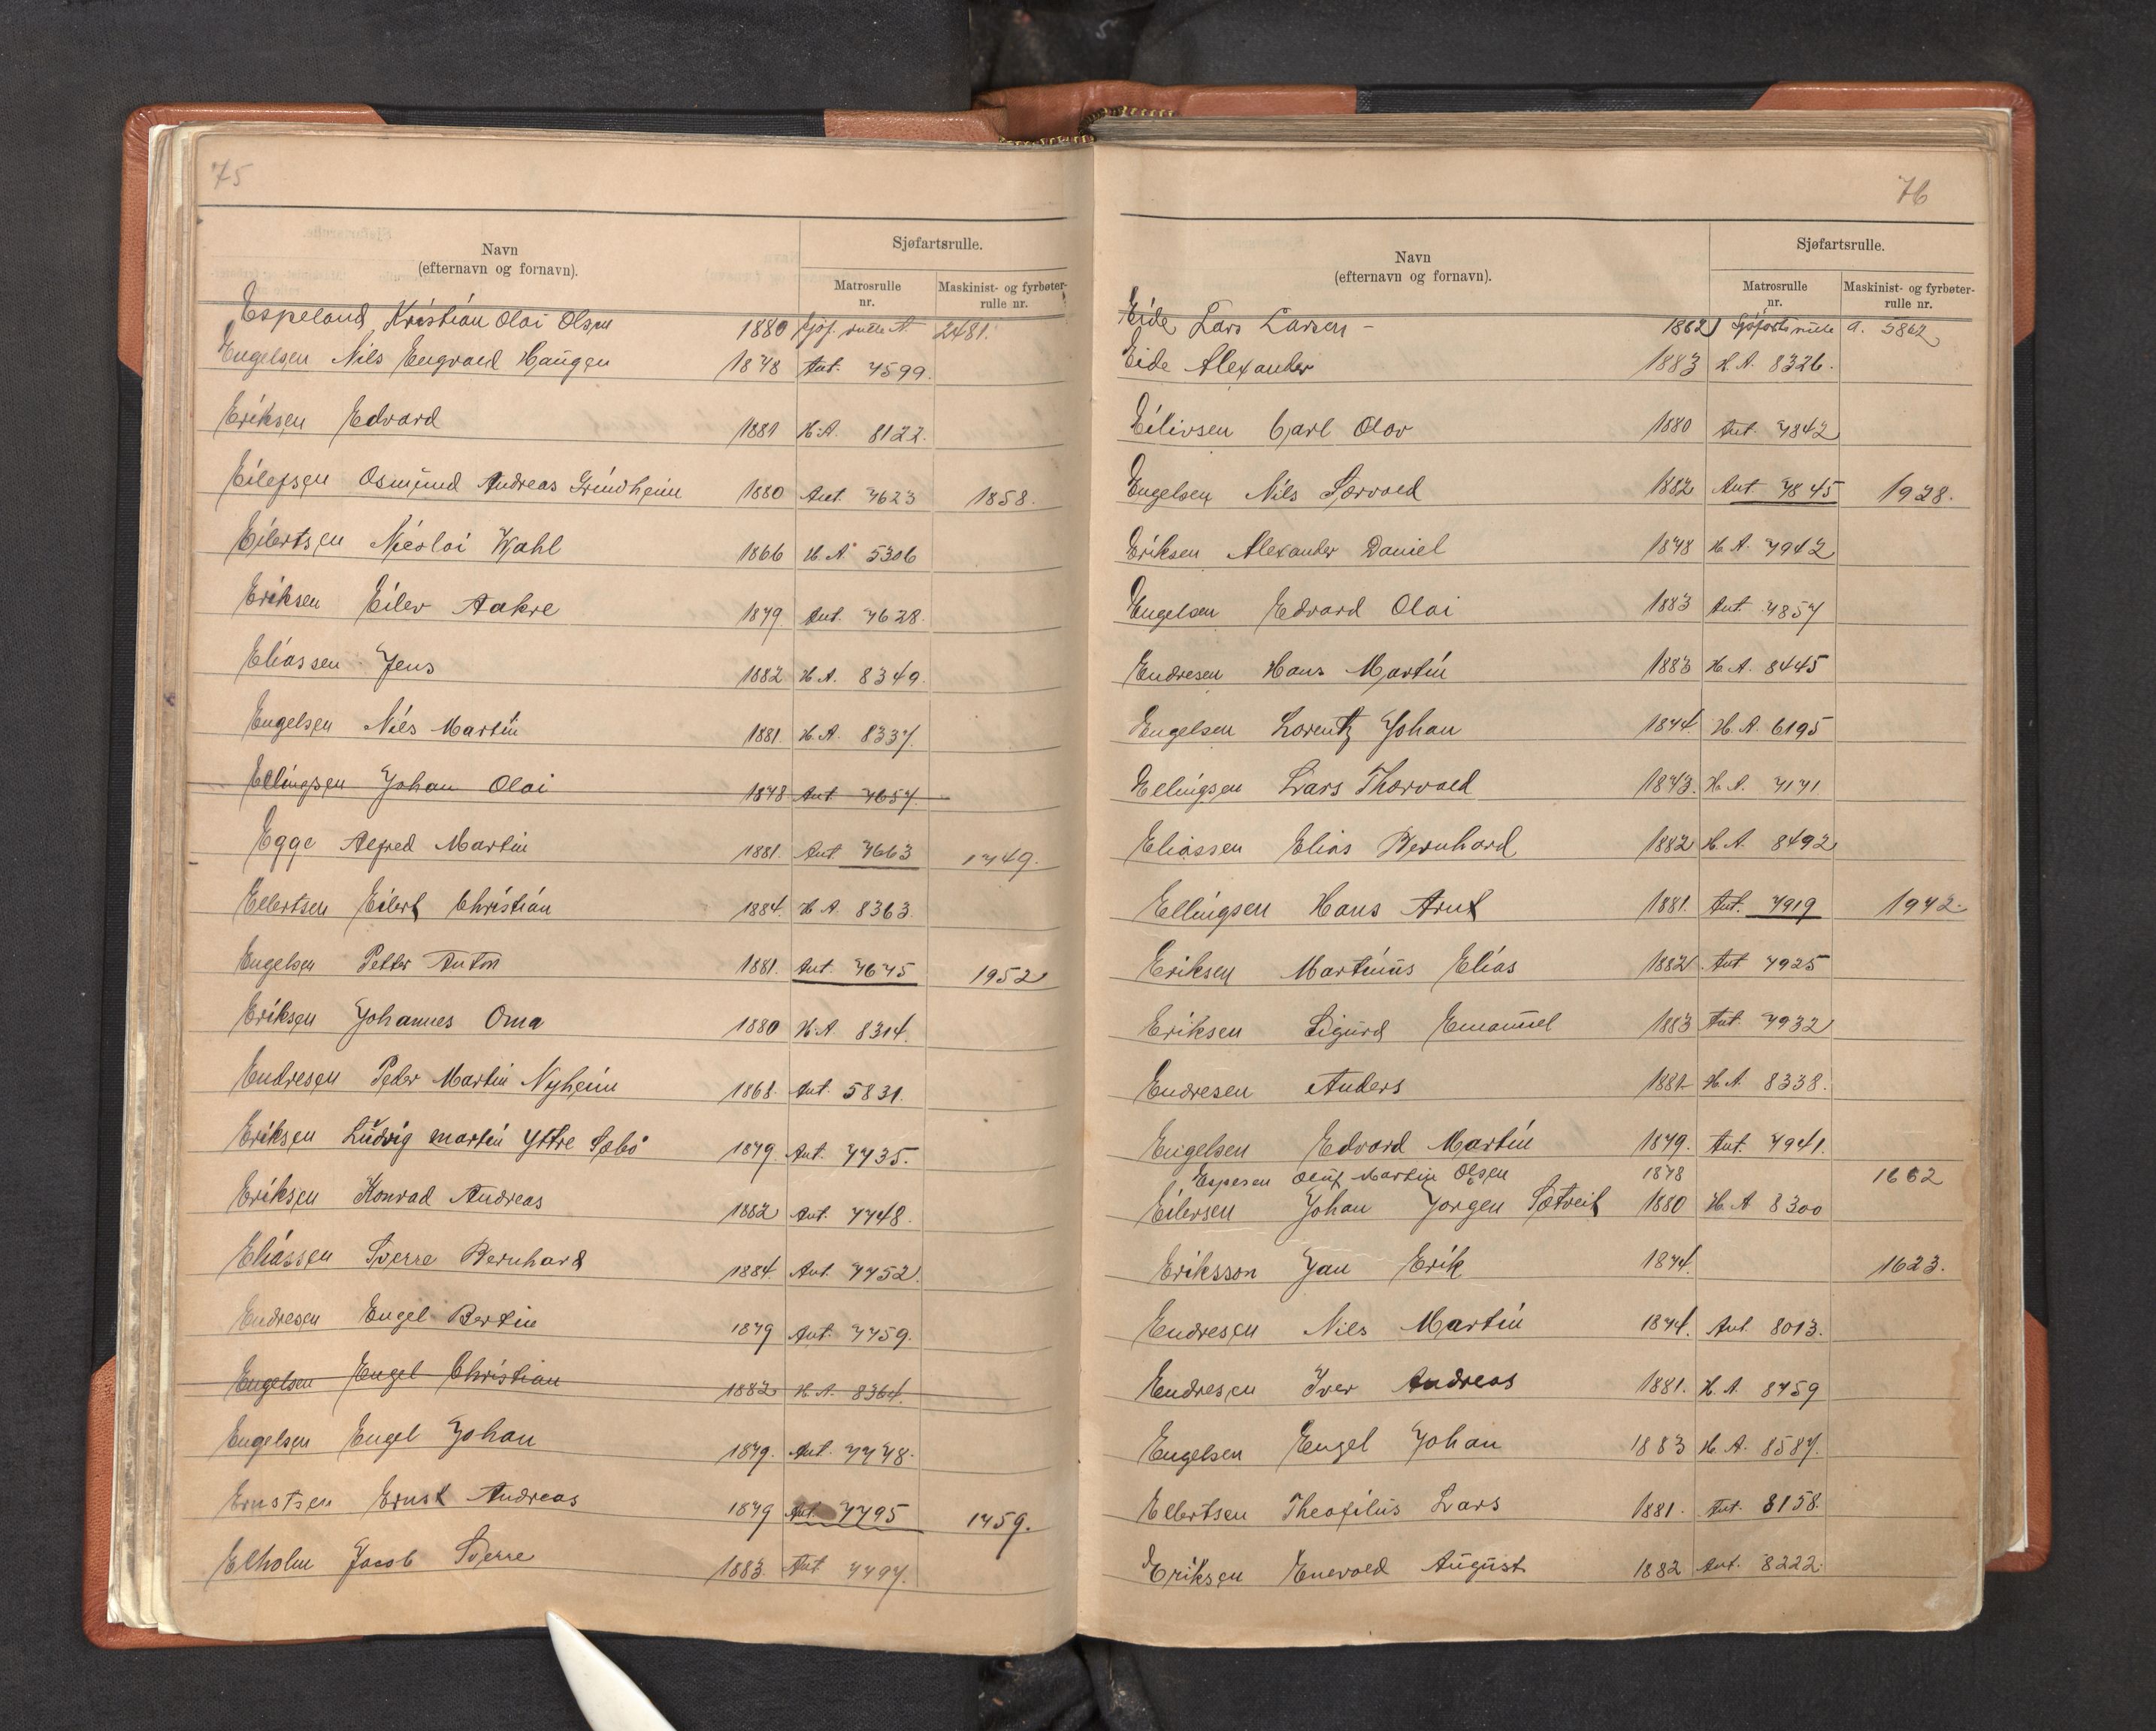 75
Navn
(efternavn og fornavn).
Sjøfartsrulle.
Matrosrulle
nr.
Maskinist- og fyrbøter-
rulle nr.
Espeland, Kristian Olai Olsen 1880 Sjøf. rulle A. 2481.
Engelsen Nils Engvald Haugen 1878 Ant. 7599.
Eriksen Edvard 1881 H.A. 8122.
Eilefsen Osmund Andreas Grindheim 1880 Ant. 7623 1858.
Eilertsen Nicolai Wahl 1866 H.A. 5306
Eriksen Eilev Aakre 1879. Ant. 7628.
Eliassen Jens 1882 H.A. 8349.
Engelsen Nils Martin 1881. H.A. 8337.
Ellingsen Johan Olai 1878 Ant 7657.
Egge Alfred Martin 1881. Ant 7663 1749.
Ellertsen Eilert Christian 1884. H.A. 8363.
Engelsen Petter Anton 1881. Ant. 7675 1952
Eriksen Johannes Oma 1880 H.A. 8314.
Endresen Peder Martin Nyheim 1868. Ant. 5831.
Eriksen Ludvig Martin Yttre Sæbö 1879. Ant. 7735.
Eriksen Konrad Andreas 1882 Ant. 7748.
Eliassen Sverre Bernhard 1884. Ant. 7752.
Endresen Engel Bertin 1879 Ant. 7759.
Engelsen Engel Christian 1882 H.A. 8364.
Engelsen Engel Johan 1879. Ant. 7778.
Ernstsen Ernst Andreas 1879 Ant. 7795 1759.
Elholm Jacob Sverre 1883. Ant 7797.
76
Navn
(efternavn og fornavn).
Sjøfartsrulle.
Matrosrulle
nr.
Maskinist- og fyrbøter-
rulle nr.
Eide, Lars Larsen - 1862 Sjöfartsrulle a. 5862
Eide Alexander 1883 H.A. 8326.
Eilivsen Carl Olav 1880 Ant. 7842
Engelsen Nils Sørvald 1882 Ant. 7845 1928.
Eriksen Alexander Daniel 1878 H.A. 7942
Engelsen Edvard Olai 1883 Ant 7857
Endresen Hans Martin 1883 H.A. 8445
Engelsen Lorentz Johan 1874. H.A. 6195
Ellingsen Lars Thorvald 1873. H.A. 7171
Eliassen Elias Bernhard 1882 H.A. 8492
Ellingsen Hans Arnt 1881. Ant. 7919 1972.
Eriksen Martinus Elias 1882. Ant 7925
Eriksen Sigurd Emanuel 1883 Ant. 7932
Endresen Anders 1881- H.A. 8338.
Engelsen Edvard Martin 1879. Ant. 7941.
Espesen Oluf Martin Olsen 1878 1662
Eilersen Johan Jorgen Sætveit 1880 H.A 8300
Eriksson Jan Erik 1874. 1623.
Endresen Nils Martin 1874. Ant. 8013.
Endresen Iver Andreas 1881. H.A. 8759
Engelsen Engel Johan 1883 H.A. 8587.
Ellertsen Theofilus Lars 1881. Ant. 8158.
Eriksen Enevald August 1882 Ant. 8222.